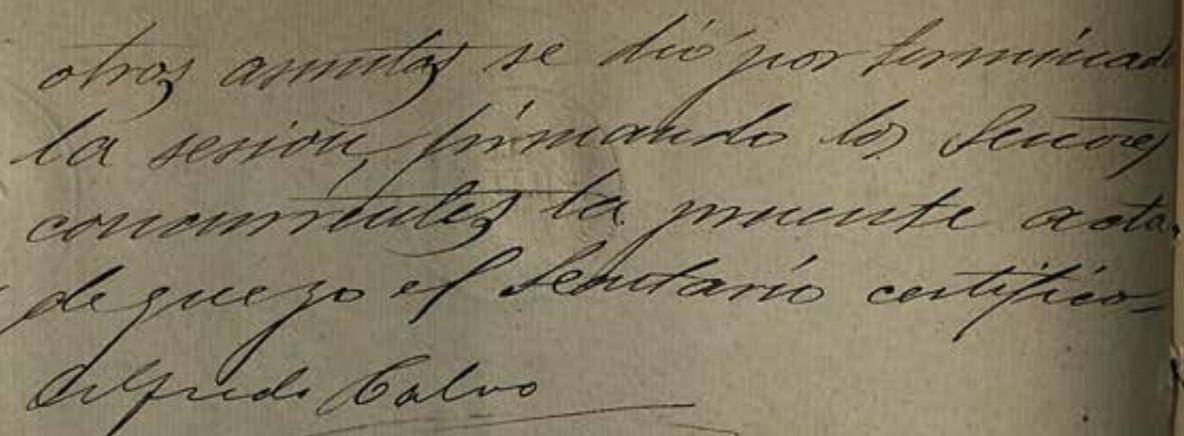 otros asuntos se dió por terminada
la sesión, firmando los Señores
concurrentes la presente acta
de que yo el Secretario certifico
Alfredo Calvo